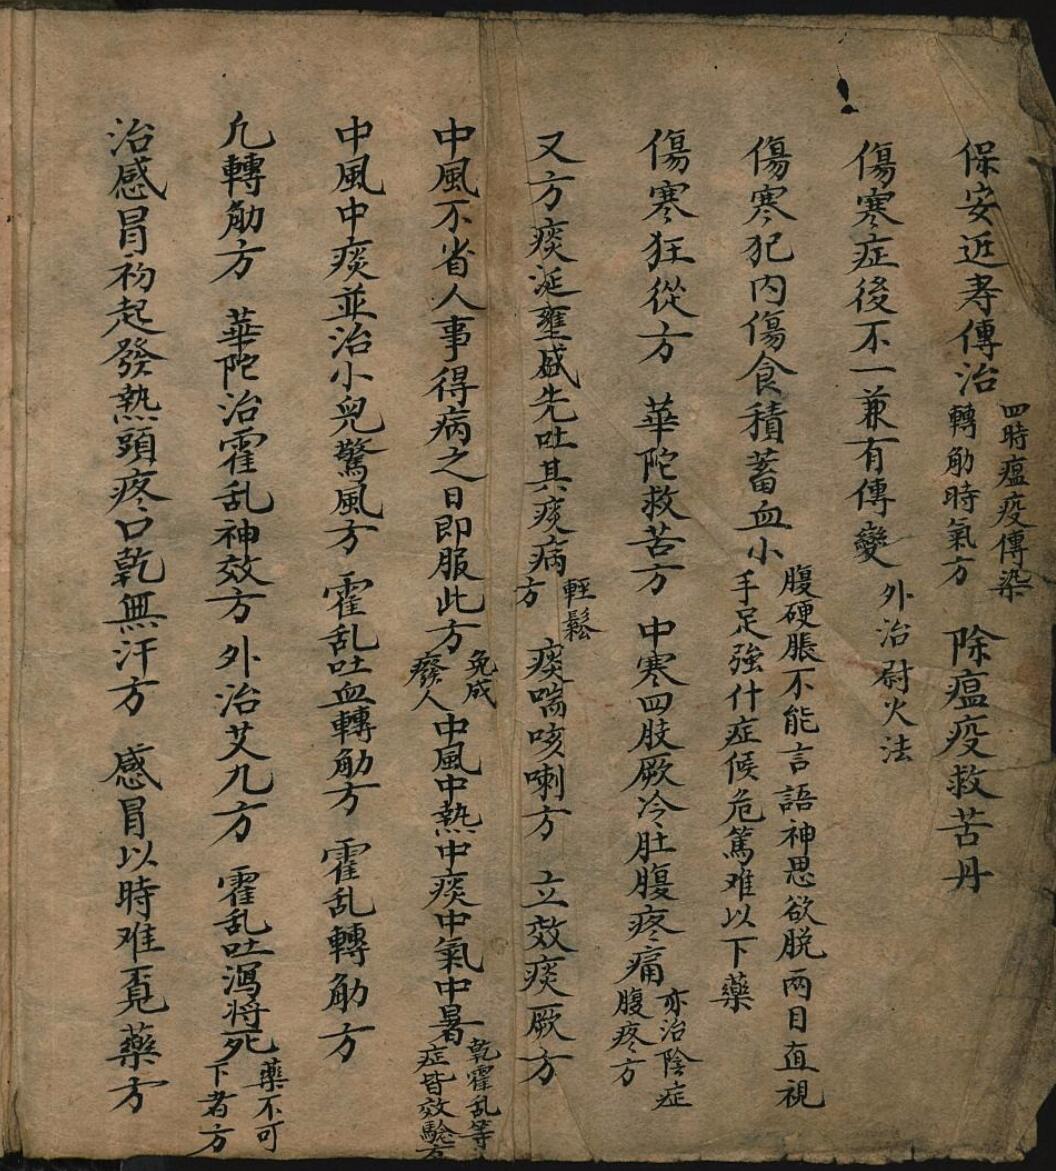 保安延寿傳治四時瘟疫傳染轉觔時氣方 除瘟疫救苦丹
傷寒症後不一兼有傳變 外治尉火法
傷寒犯内傷食積蓄血小腹硬脹不能言語神思欲脱兩目直視手足強什症候危篤难以下藥
傷寒狂從方 華陀救苦方 中寒四肢厥冷肚腹疼痛亦治陰症腹疼方
又方痰涎壅盛先吐其痰病輕鬆方 痰喘咳喇方 立效痰厥方
中風不省人事得病之日即服此方免成癈人 中風中熱中痰中氣中暑乾霍乱等症皆效驗方
中風中痰並治小兒驚風方 霍乱吐血轉觔方 霍乱轉觔方
凢轉觔方 華陀治霍乱神效方 外治艾九方 霍乱吐瀉将死藥不可下者方
治感冒初起發热頭疼口乾無汗方 感冒以時难覓藥方